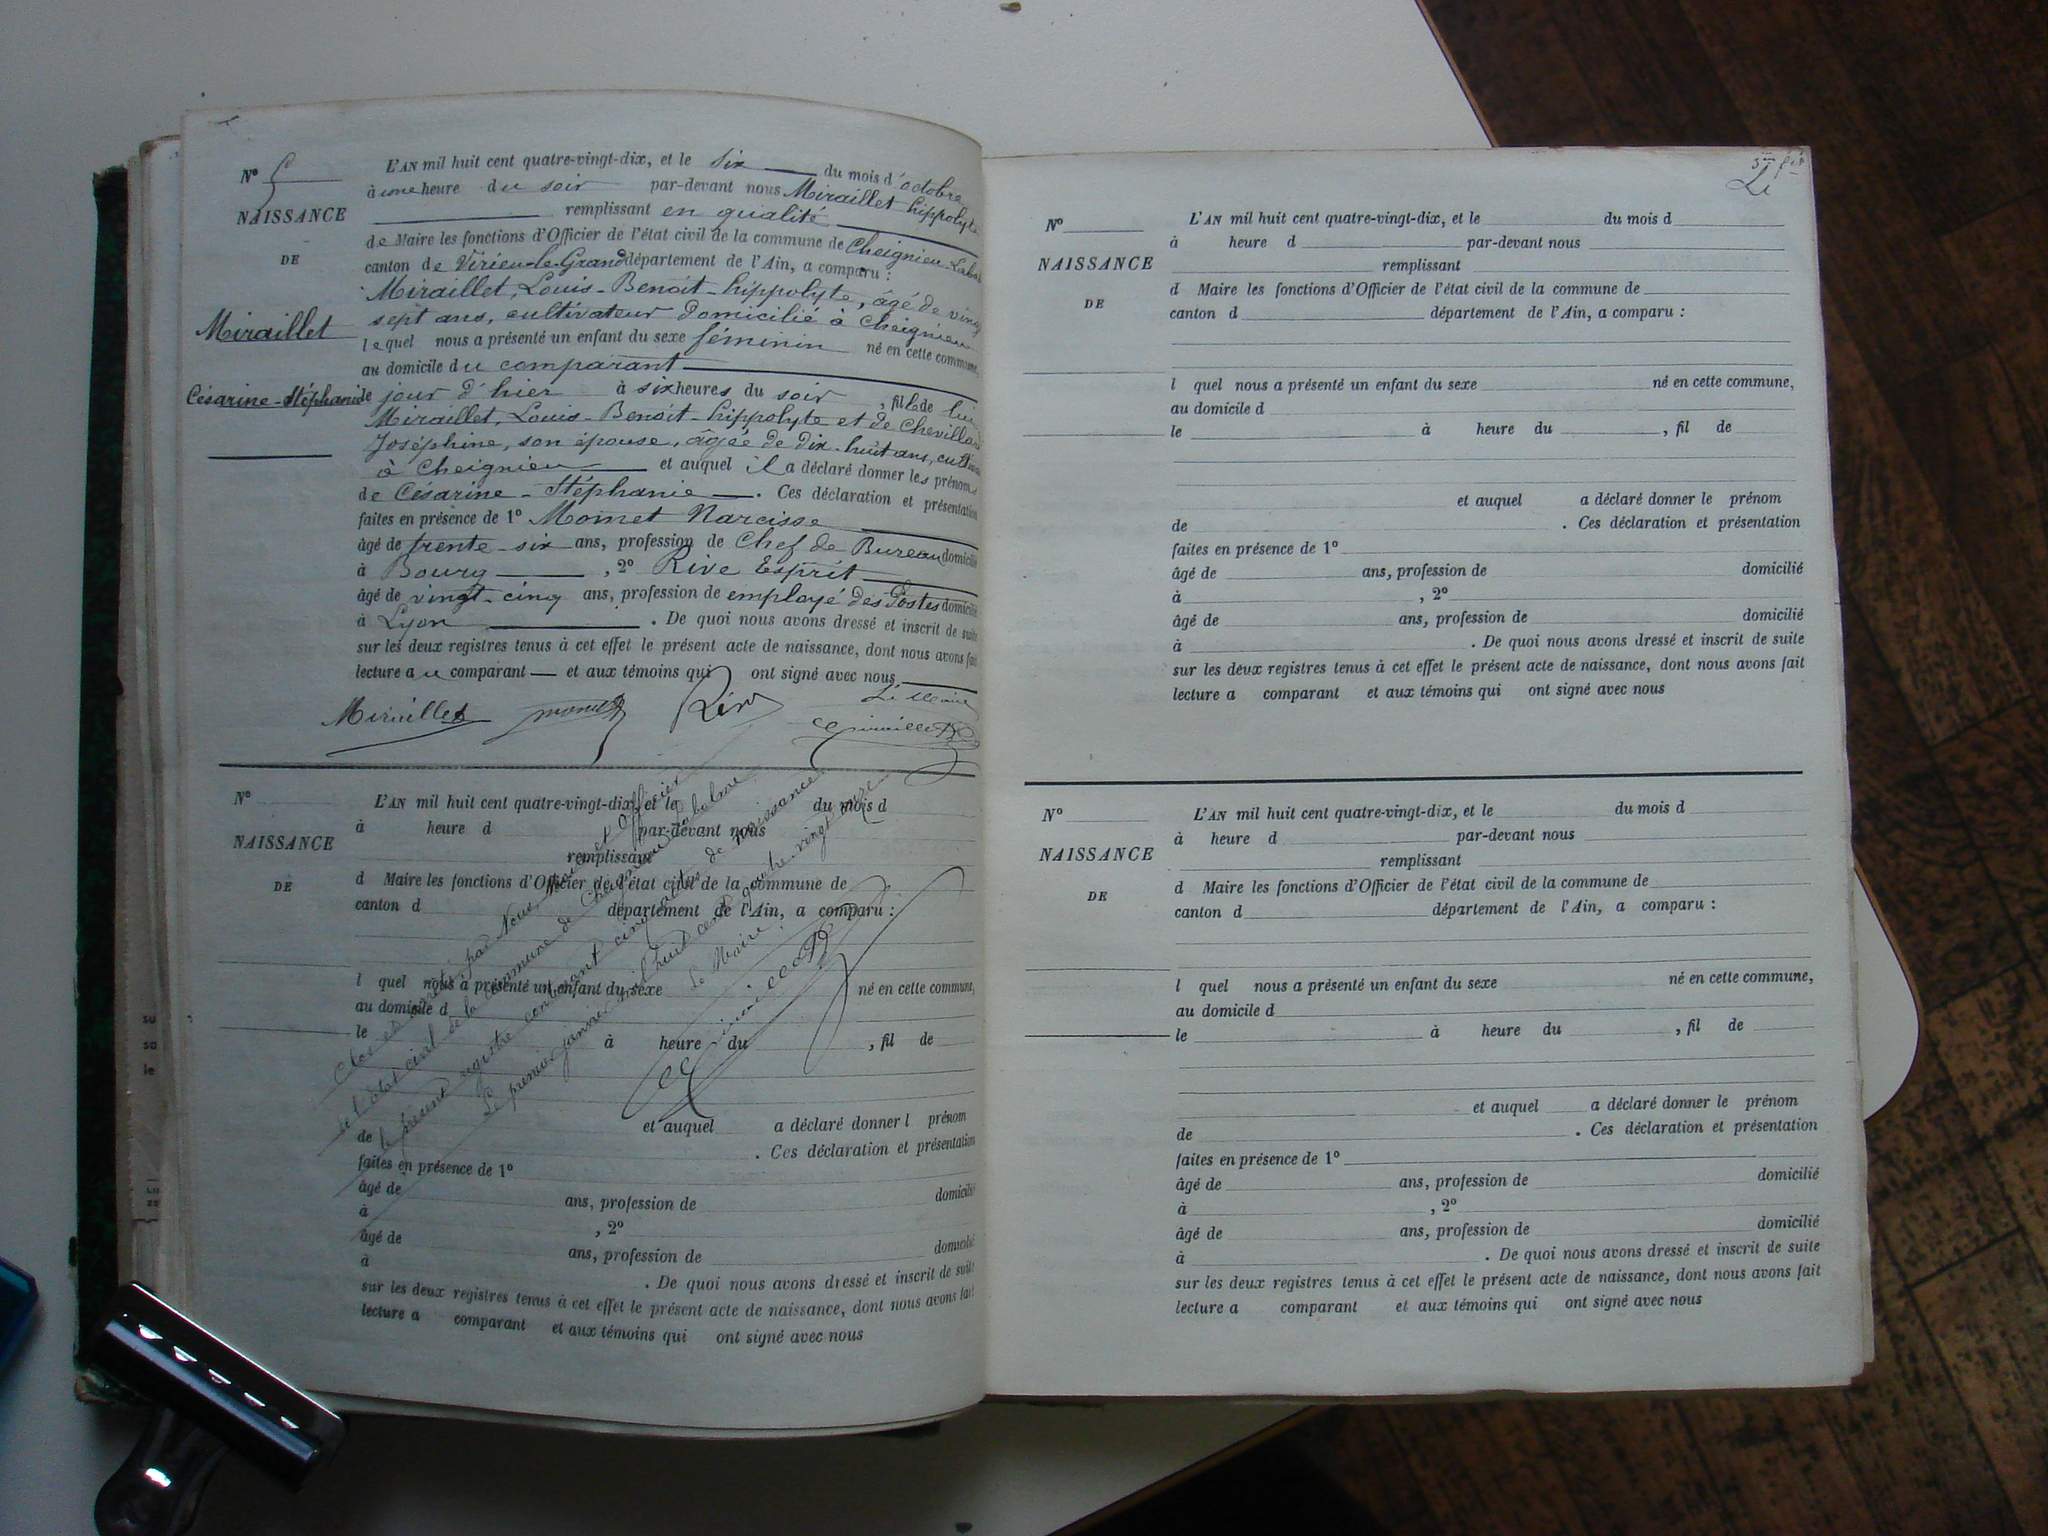 N° 5
NAISSANCE
DE
Miraillet
Césarine-Stéphanie
L'AN mil huit cent quatre-vingt-dix, et le six du mois d'octobre
à une heure du soir par-devant nous Miraillet hippolyte
remplissant en qualité
de Maire les fonctions d'Officier de l'état civil de la commune de Cheignieu-Labal
canton de Virieu-le-Grand département de l'Ain, a comparu :
Miraillet, Louis-Benoit-hippolyte, âgé de vingt
sept ans, cultivateur domicilié à Cheignieu
lequel nous a présenté un enfant du sexe féminin né en cette commune,
au domicile du comparant
le jour d'hier à six heures du soir, fille de lui
Miraillet, Louis-Benoit-hippolyte et de Chevillard
Joséphine, son épouse, âgée de dix-huit ans, cultiv
à Cheignieu et auquel il a déclaré donner les prénoms
de Césarine-Stéphanie. Ces déclaration et présentation
faites en présence de 1° Momet Narcisse
âgé de trente-six ans, profession de Chef de Bureau domicilié
à Bourg, 2° Rive Esprit
âgé de vingt-cinq ans, profession de employé des Postes domicilié
à Lyon. De quoi nous avons dressé et inscrit de suite
sur les deux registres tenus à cet effet le présent acte de naissance, dont nous avons fait
lecture au comparant et aux témoins qui ont signé avec nous
Miraillet Le Maire
N°
NAISSANCE
DE
L'AN mil huit cent quatre-vingt-dix, et le du mois d
à heure d par-devant nous
remplissant
d Maire les fonctions d'Officier de l'état civil de la commune de
canton d département de l'Ain, a comparu :
l quel nous a présenté un enfant du sexe né en cette commune,
au domicile d
le à heure du , fil de
et auquel a déclaré donner l prénom
de . Ces déclaration et présentation
faites en présence de 1°
âgé de ans, profession de domicilié
à , 2°
âgé de ans, profession de domicilié
à . De quoi nous avons dressé et inscrit de suite
sur les deux registres tenus à cet effet le présent acte de naissance, dont nous avons fait
lecture a comparant et aux témoins qui ont signé avec nous
Clos et arrêté par Nous, Maire et Officier
de l'état civil de la commune de Cheignieu-Labalme
le présent registre contenant cinq actes de naissance
Le premier janvier mil huit cent quatre-vingt onze
Le Maire
N°
NAISSANCE
DE
L'AN mil huit cent quatre-vingt-dix, et le du mois d
à heure d par-devant nous
remplissant
d Maire les fonctions d'Officier de l'état civil de la commune de
canton d département de l'Ain, a comparu :
l quel nous a présenté un enfant du sexe né en cette commune,
au domicile d
le à heure du , fil de
et auquel a déclaré donner le prénom
de . Ces déclaration et présentation
faites en présence de 1°
âgé de ans, profession de domicilié
à , 2°
âgé de ans, profession de domicilié
à . De quoi nous avons dressé et inscrit de suite
sur les deux registres tenus à cet effet le présent acte de naissance, dont nous avons fait
lecture a comparant et aux témoins qui ont signé avec nous
N°
NAISSANCE
DE
L'AN mil huit cent quatre-vingt-dix, et le du mois d
à heure d par-devant nous
remplissant
d Maire les fonctions d'Officier de l'état civil de la commune de
canton d département de l'Ain, a comparu :
l quel nous a présenté un enfant du sexe né en cette commune,
au domicile d
le à heure du , fil de
et auquel a déclaré donner le prénom
de . Ces déclaration et présentation
faites en présence de 1°
âgé de ans, profession de domicilié
à , 2°
âgé de ans, profession de domicilié
à . De quoi nous avons dressé et inscrit de suite
sur les deux registres tenus à cet effet le présent acte de naissance, dont nous avons fait
lecture a comparant et aux témoins qui ont signé avec nous